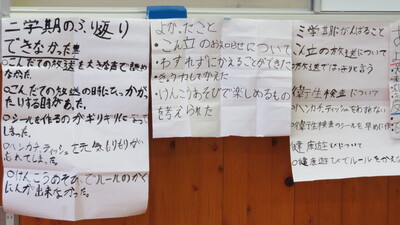 二学期のふり返り
できなかった!!
○こんだての放送を大きな声で読め
なかった。
○こんだての放送の時につっかか
ったりする時があった。
○シールを作るのがギリギリになって
しまった。
○ハンカチティッシュを
忘れてしまった。
○けんこうあそびでルールのかく
にんが出来なかった。
よかったこと
・こん立のお知らせについて
・わすれずにかえることができた
・きょう力してかえた
・けんこうあそびで楽しめるもの
を考えられた
三学期がんばること
こん立の放送について
○放送ではっきり言う
衛生検査について
○ハンカチティッシュをわすれない
○衛生検査のシールを早めに作
健康遊びについて
○健康遊びでルールをかえ